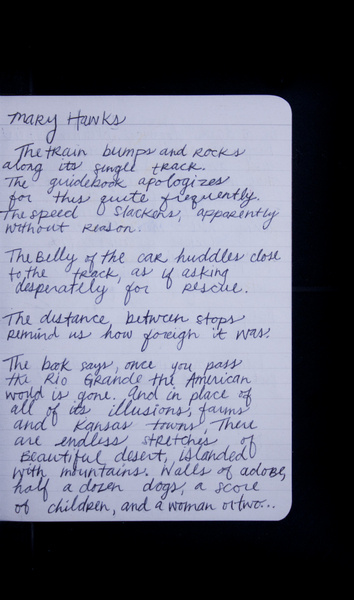 Mary Hawks
The train bumps and rocks
along its single track.
The guidebook apologizes
for this quite frequently.
The speed slackens, apparently
without reason.
The Belly of the car huddles close
to the track, as if asking
desperately for rescue.
The distance between stops
remind us how foreign it was.
The book says, once you pass
the Rio Grande the American
world is gone. And in place of
all of its illusions, farms
and Kansas towns, There
are endless stretches of
Beautiful desert, islanded
with mountains. Walls of adobe,
half a dozen dogs, a score
of children, and a woman or two...